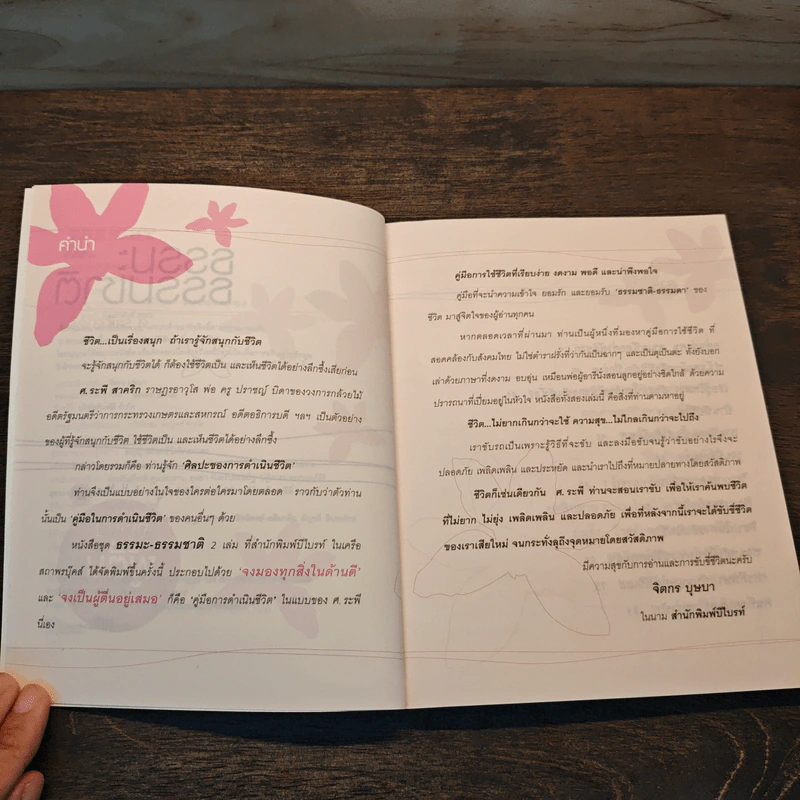 คำนำ
ชีวิต...เป็นเรื่องสนุก ถ้าเรารู้จักสนุกกับชีวิต
จะรู้จักสนุกกับชีวิตได้ ก็ต้องใช้ชีวิตเป็น และเห็นชีวิตได้อย่างลึกซึ้งเสียก่อน
ศ.ระพี สาคริก ราษฎรอาวุโส พ่อ ครู ปราชญ์ บิดาของวงการกล้วยไม้
อดีตรัฐมนตรีว่าการกระทรวงเกษตรและสหกรณ์ อดีตอธิการบดี ฯลฯ เป็นตัวอย่าง
ของผู้ที่รู้จักสนุกกับชีวิต ใช้ชีวิตเป็น และเห็นชีวิตได้อย่างลึกซึ้ง
กล่าวโดยรวมก็คือ ท่านรู้จัก 'ศิลปะของการดำเนินชีวิต'
ท่านจึงเป็นแบบอย่างในใจของใครต่อใครมาโดยตลอด ราวกับว่าตัวท่าน
นั้นเป็น 'คู่มือในการดำเนินชีวิต' ของคนอื่นๆ ด้วย
หนังสือชุด ธรรมะ-ธรรมชาติ 2 เล่ม ที่สำนักพิมพ์บีไบรท์ ในเครือ
สถาพรบุ๊คส์ ได้จัดพิมพ์ขึ้นครั้งนี้ ประกอบไปด้วย 'จงมองทุกสิ่งในด้านดี'
และ 'จงเป็นผู้ตื่นอยู่เสมอ' ก็คือ 'คู่มือการดำเนินชีวิต' ในแบบของ ศ.ระพี
นี่เอง
คู่มือการใช้ชีวิตที่เรียบง่าย งดงาม พอดี และน่าพึงพอใจ
คู่มือที่จะนำความเข้าใจ ยอมรัก และยอมรับ 'ธรรมชาติ-ธรรมดา' ของ
ชีวิต มาสู่จิตใจของผู้อ่านทุกคน
หากตลอดเวลาที่ผ่านมา ท่านเป็นผู้หนึ่งที่มองหาคู่มือการใช้ชีวิต ที่
สอดคล้องกับสังคมไทย ไม่ใช่ตำราฝรั่งที่ว่ากันเป็นฉากๆ และเป็นตุเป็นตะ ทั้งยังบอก
เล่าด้วยภาษาที่งดงาม อบอุ่น เหมือนพ่อผู้อารีนั่งสอนลูกอยู่อย่างชิดใกล้ ด้วยความ
ปรารถนาที่เปี่ยมอยู่ในหัวใจ หนังสือทั้งสองเล่มนี้ คือสิ่งที่ท่านตามหาอยู่
ชีวิต...ไม่ยากเกินกว่าจะใช้ ความสุข...ไม่ไกลเกินกว่าจะไปถึง
เราขับรถเป็นเพราะรู้วิธีที่จะขับ และลงมือขับจนรู้ว่าขับอย่างไรจึงจะ
ปลอดภัย เพลิดเพลิน และประหยัด และนำเราไปถึงที่หมายปลายทางโดยสวัสดิภาพ
ชีวิตก็เช่นเดียวกัน ศ.ระพี ท่านจะสอนเราขับ เพื่อให้เราค้นพบชีวิต
ที่ไม่ยาก ไม่ยุ่ง เพลิดเพลิน และปลอดภัย เพื่อที่หลังจากนี้เราจะได้ขับขี่ชีวิต
ของเราเสียใหม่ จนกระทั่งลุถึงจุดหมายโดยสวัสดิภาพ
มีความสุขกับการอ่านและการขับขี่ชีวิตนะครับ
จิตกร บุษบา
ในนาม สำนักพิมพ์บีไบรท์